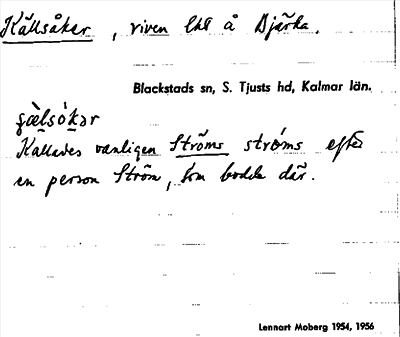 Källsåker, riven lht å Djärka.
Blackstads sn, S. Tjusts hd, Kalmar län.
Kallades vanligen Ströms ströms efter
en person Ström, som bodde där.
Lennart Moberg 1954, 1956